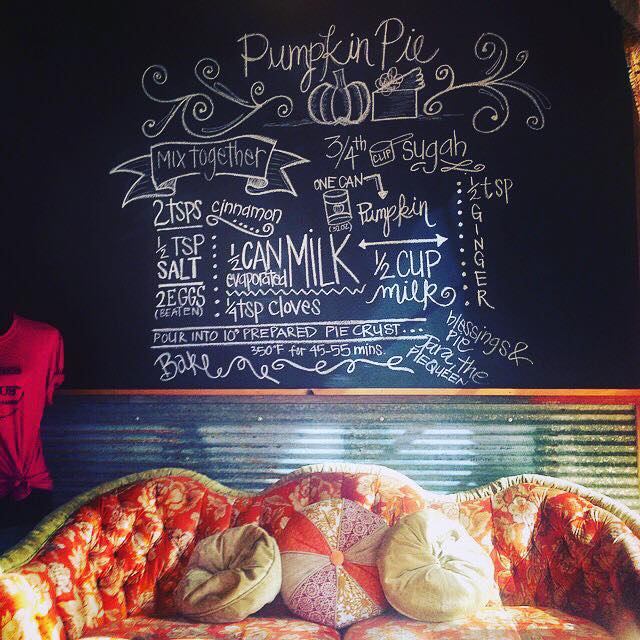 Pumpkin Pie
MIX together
3/4th CUP sugah
2 TSPS cinnamon
ONE CAN
Pumpkin
1/2 TSP SALT
1/2 CAN evaporated MILK
1/2 CUP milk
1/2 tsp GINGER
2 EGGS
(BEATEN)
1/4 tsp cloves
POUR INTO 10" PREPARED PIE CRUST...
350°F for 45-55 mins.
Bake
blessings &
Pie,
Tara the
PIEQUEEN